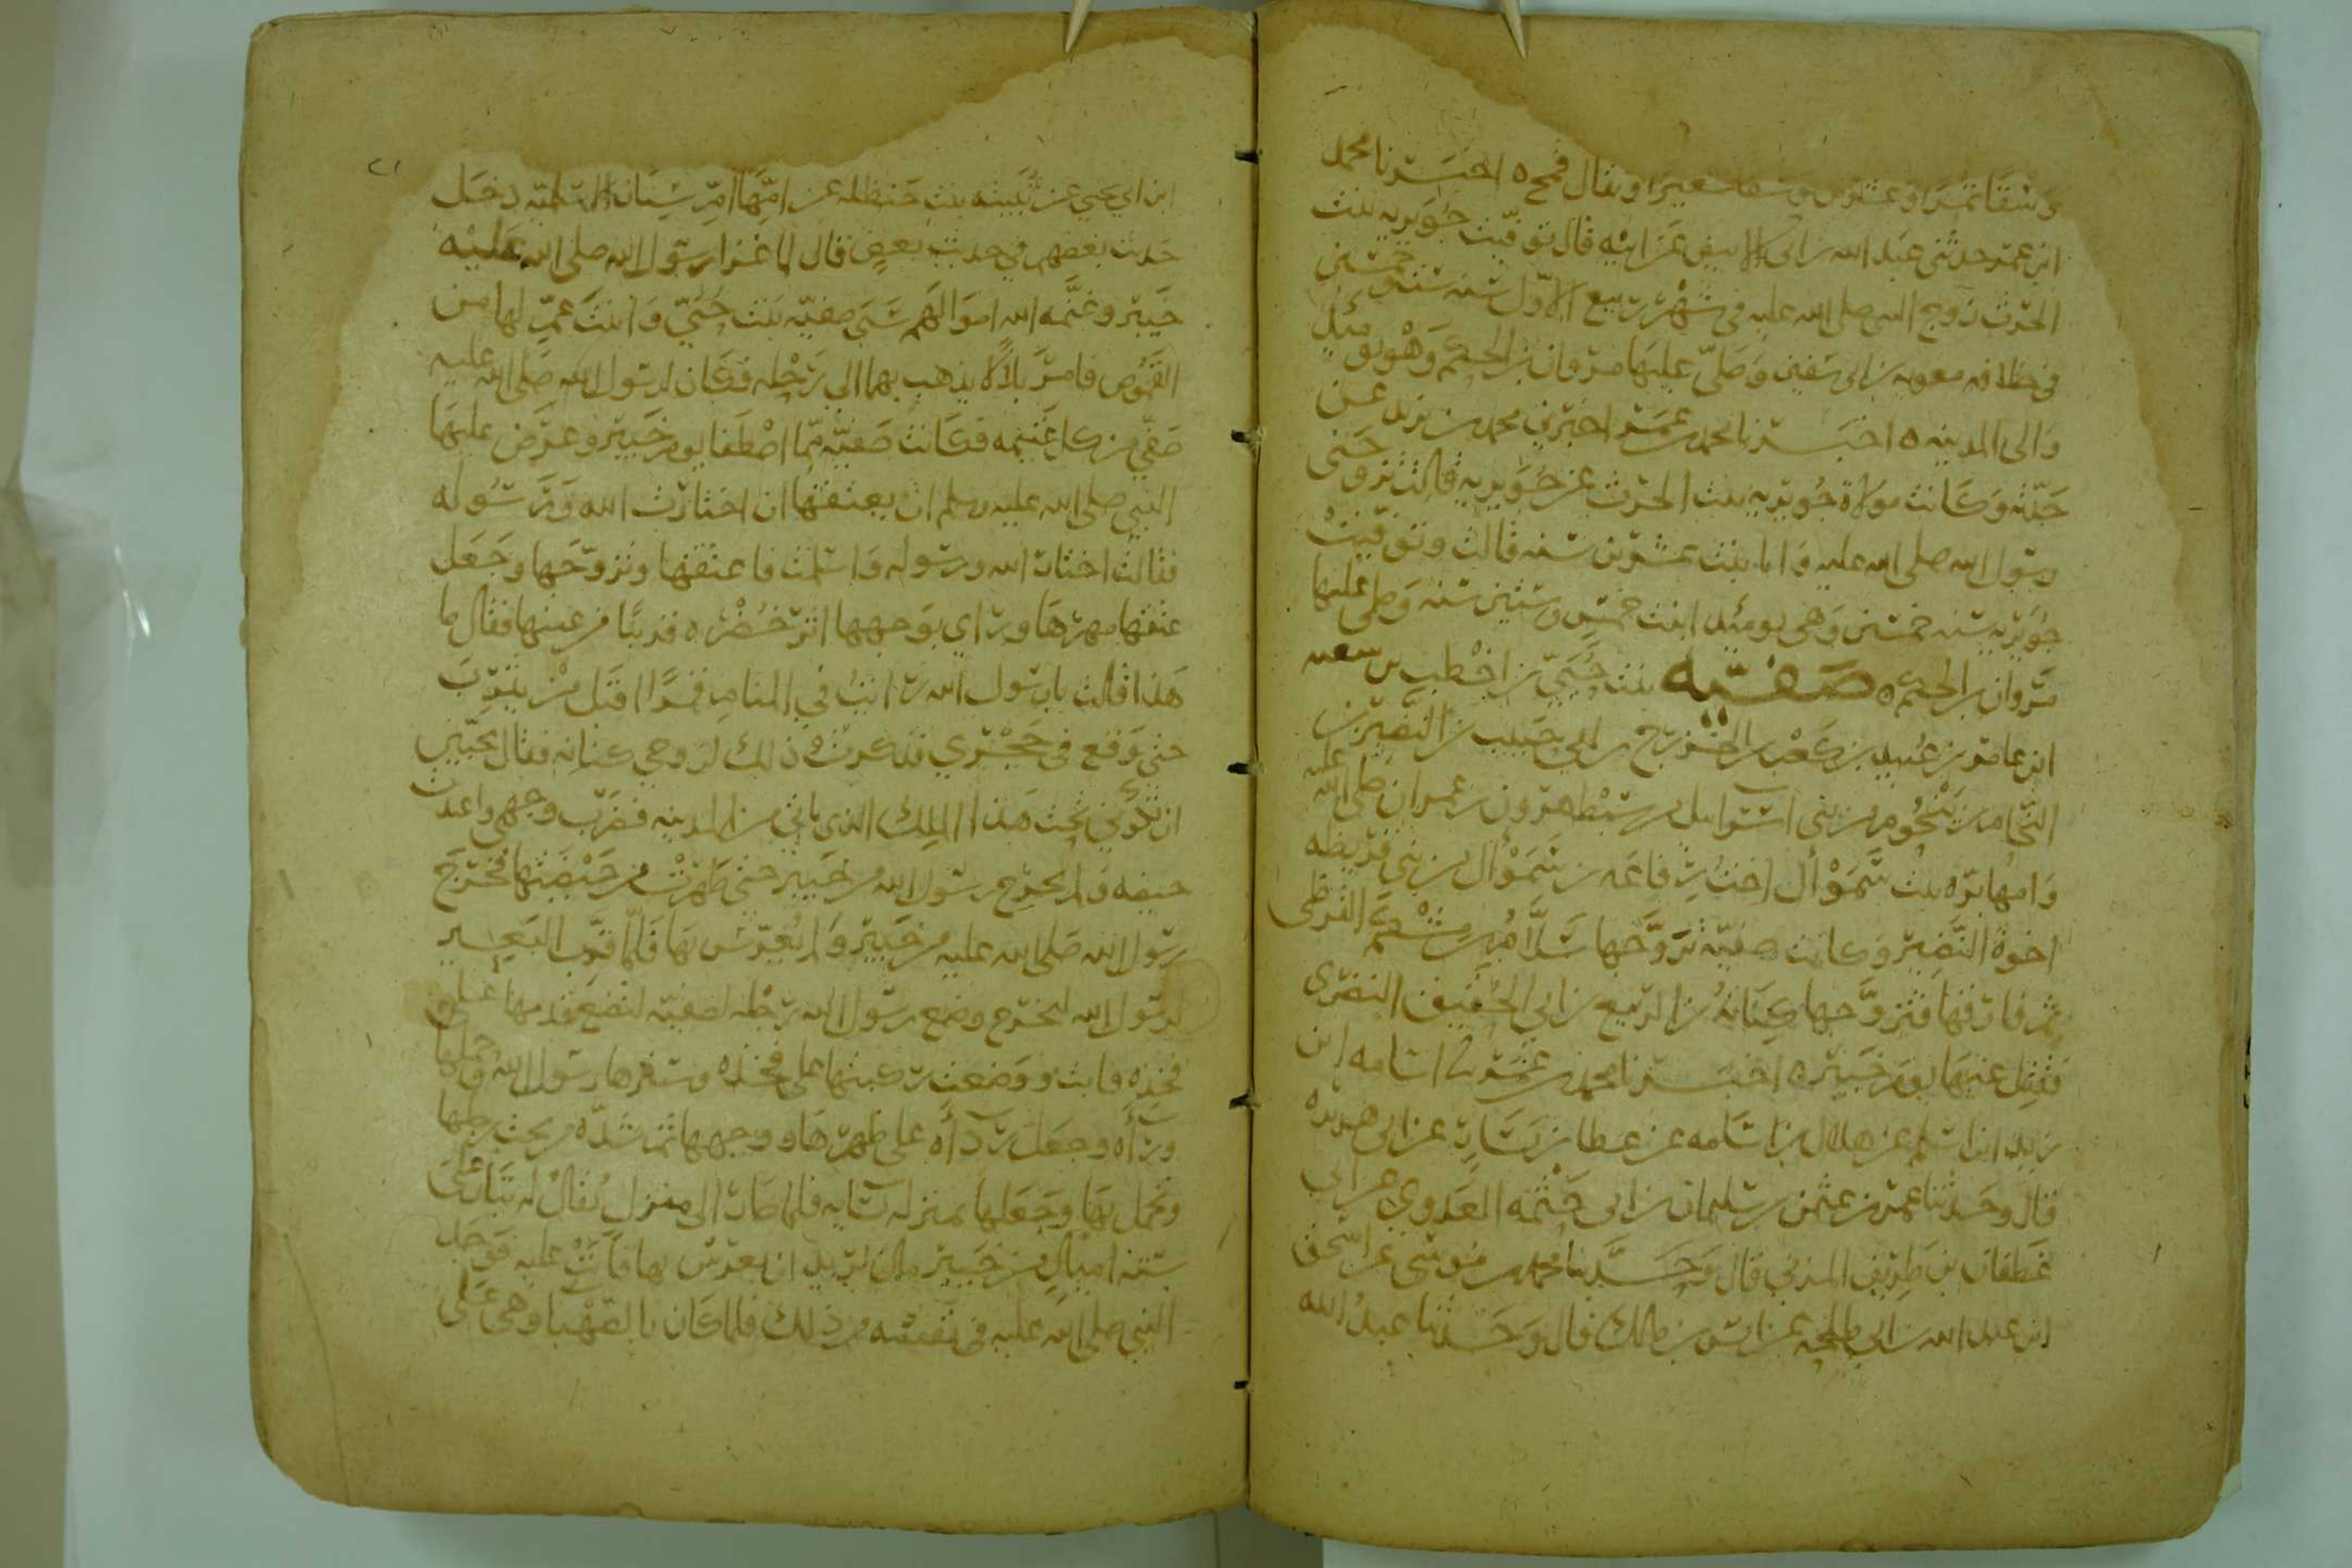 وسقا تمرا وعشرين وسقا شعيرا ويقال قمح ه اخبرنا محمد
ابن عمر حدثني عبد الله بن ابي الابيض عن ابيه قال توفيت جويريه بنت
الحرث زوج النبي صلى الله عليه في شهر ربيع الاول سنه ست وخمسين
في خلافه معويه بن ابي سفين وصلى عليها مروان بن الحكم وهو يومئذ
والي المدينه ه اخبرنا محمد بن عمر اخبرني محمد بن يزيد عن
جدته وكانت مولاة جويريه بنت الحرث عن جويريه قالت تزوجني
رسول الله صلى الله عليه وانا بنت عشرين سنه قالت وتوفيت
جويريه سنه خمسين وهي يومئذ ابنت خمس وستين سنه وصلى عليها
مروان بن الحكم ه صفيه بنت حيي بن اخطب بن سعيه
ابن عامر بن عبيد بن كعب بن الخزرج بن ابي حبيب بن النضير بن
النحام بن ينحوم من بني اسرايل من سبط هرون بن عمران صلى الله عليه
وامها بره بنت سموأل اخت رفاعه بن سموأل من بني قريظه
اخوة النضير وكانت صفيه تزوجها سلام بن مشكم القرظي
ثم فارقها فتزوجها كنانه بن الربيع بن ابي الحقيق النضري
فقتل عنها يوم خيبر ه اخبرنا محمد بن عمر نا اسامه ابن
زيد ابن اسلم عن هلال بن اسامه عن عطا بن يسار عن ابي هريره
قال وحدثنا عمر بن عثمن بن سليمان بن ابي حثمه العدوي عن ابي
غطفان بن طريف المزني قال وحدثنا محمد بن موسى عن اسحق
ابن عبد الله بن ابي طلحه عن انس بن مالك قال وحدثنا عبد الله
٢١
ابن ابي يحيى عن ثبيته بنت حنظله عن امها ام سنان الاسلميه دخل
حديث بعضهم في حديث بعض قال لما غزا رسول الله صلى الله عليه
خيبر وغنمه الله اموالهم سبى صفيه بنت حيي وابنت عم لها من
القموص فامر بلالا يذهب بهما الى رحله فكان لرسول الله صلى الله عليه
صفي من كل غنيمه فكانت صفيه مما اصطفا يوم خيبر وعرض عليها
النبي صلى الله عليه وسلم ان يعتقها ان اختارت الله ورسوله
فقالت اختار الله ورسوله واسلمت فاعتقها وتزوجها وجعل
عتقها مهرها وراي بوجهها اثر خضره قريبا من عينها فقال ما
هذا قالت يا رسول الله رايت في المنام قمرا اقبل من يثرب
حتى وقع في حجري فذكرت ذلك لزوجي كنانه فقال تحبين
ان تكوني تحت هذا الملك الذي ياتي من المدينه فضرب وجهي واعتدت
حيضه ولم يخرج رسول الله من خيبر حتى طهرت من حيضتها فخرج
رسول الله صلى الله عليه من خيبر ولم يعرس بها فلما قرب البعير
لرسول الله ليخرج وضع رسول الله رجله لصفيه لتضع قدمها على
فخذه فابت ووضعت ركبتها على فخذه وسترها رسول الله وحملها
وراه وجعل رداه على ظهرها ووجهها ثم شده من تحت رجلها
وتحمل بها وجعلها بمنزله نسايه فلما صار الى منزل يقال له تبار على
سته اميال من خيبر مال يريد ان يعرس بها فابت عليه فوجد
النبي صلى الله عليه في نفسه من ذلك فلما كان بالصهبا وهي على